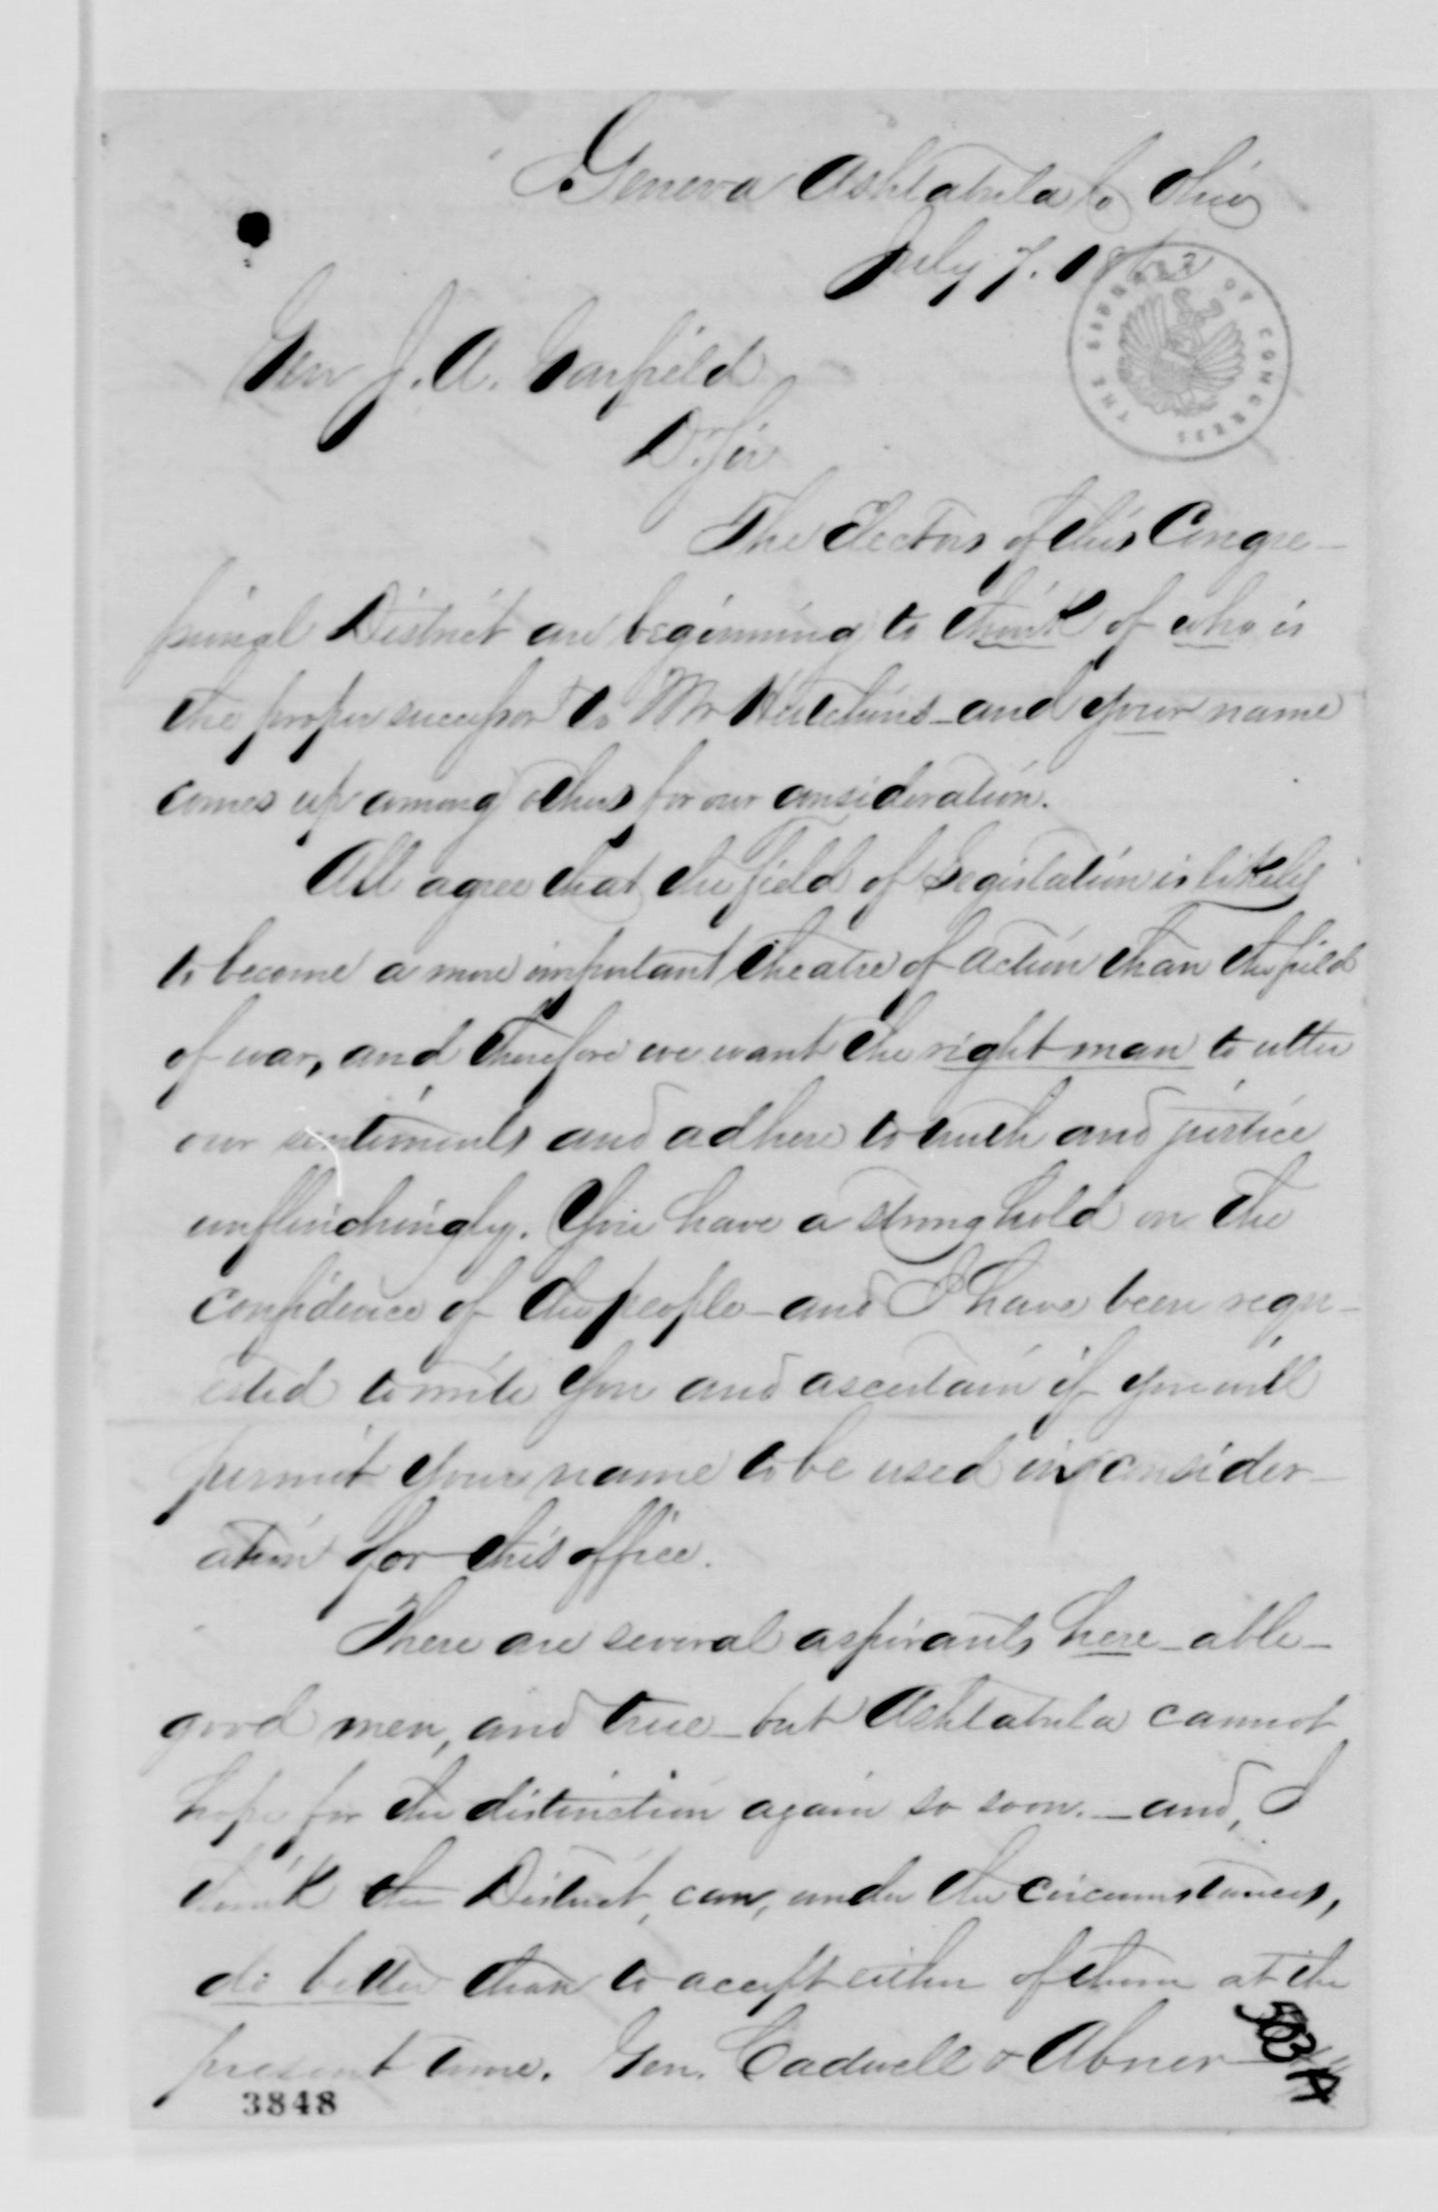 Geneva Ashtabula Co Ohio
July 7. 1862
THE LIBRARY OF CONGRESS
Gen J. A. Garfield
Dr Sir
The Electors of this Congre-
ssional District are beginning to think of who is
the proper successor to Mr Hutchins - and your name
comes up among others for our consideration.
All agree that the field of Legislation is likely
to become a more important theatre of action than the field
of war, and therefore we want the right man to utter
our sentiments and adhere to truth and justice
unflinchingly. You have a strong hold on the
confidence of the people - and I have been requ-
ested to write you and ascertain if you will
permit your name to be used in consider-
ation for this office.
There are several aspirants here - able -
good men, and true - but Ashtabula cannot
hope for the distinction again so soon. - and, I
think the District, can, under the circumstances,
do better than to accept either of them at the
present time. Gen. Cadwell & Abner
3848